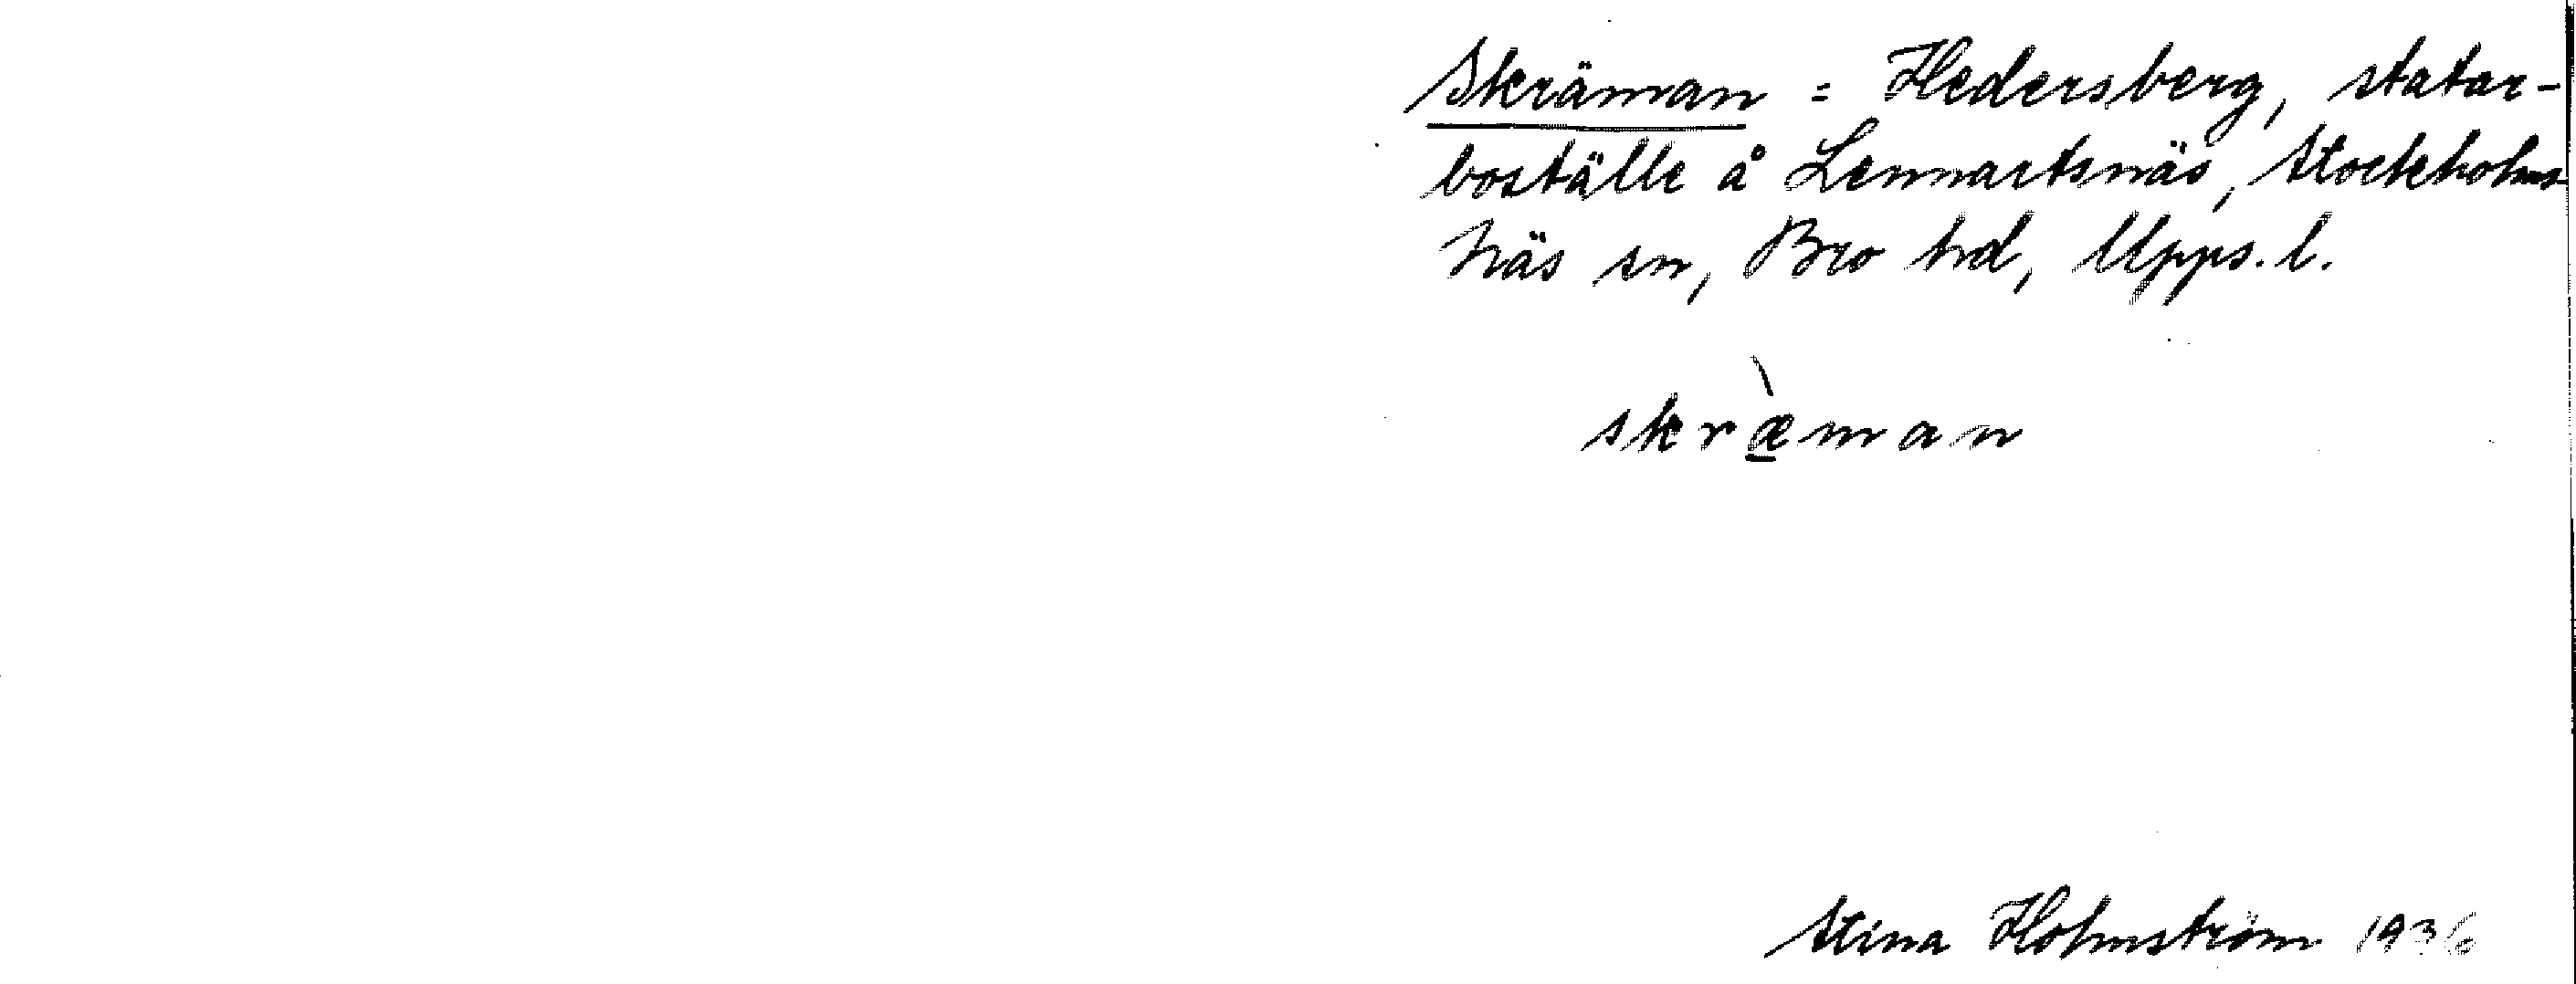 Skräman = Hedersberg, statar-
boställe å Lennartsnäs, Stockholms-
Näs sn, Bro hd, Upps. l.
skræ̀man
Stina Holmström 1936